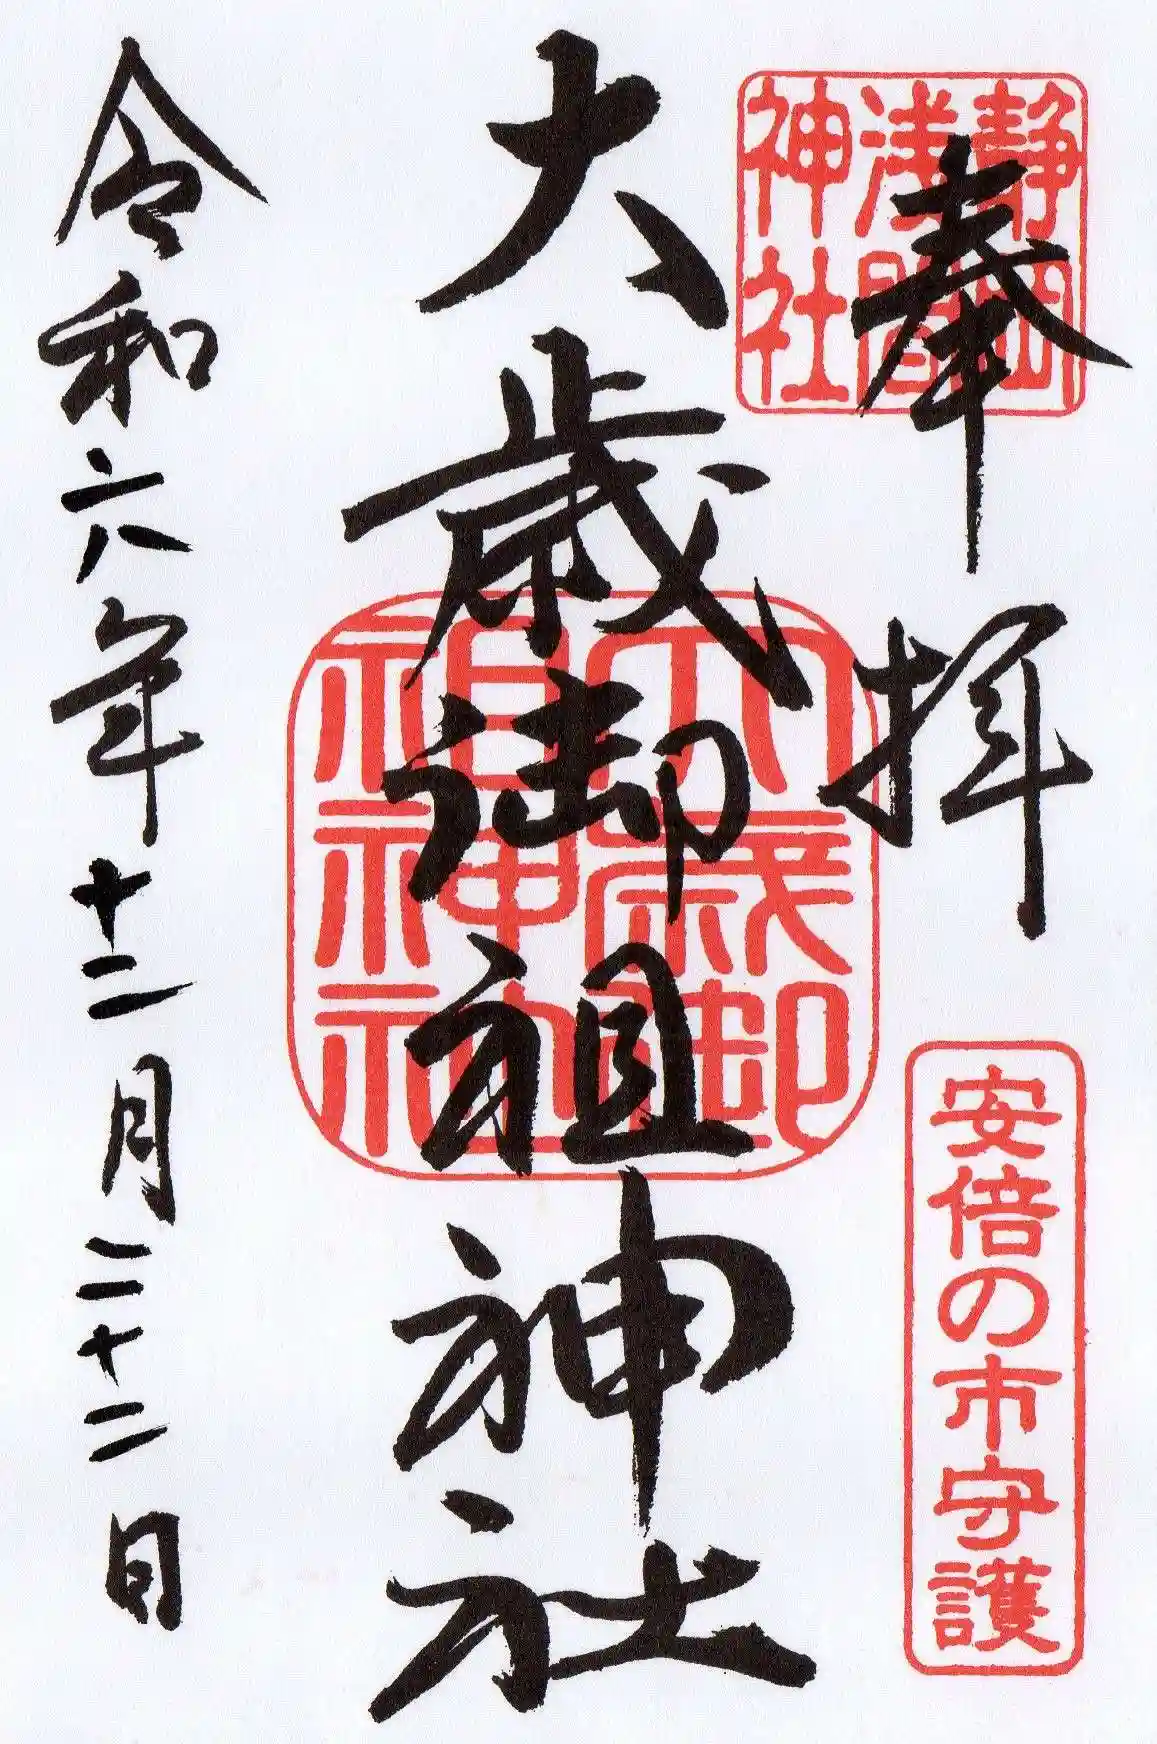 奉拝
静岡
浅間
神社
安倍の市守護
大歳御祖神社
大歳御
祖神社
令和六年十二月二十二日